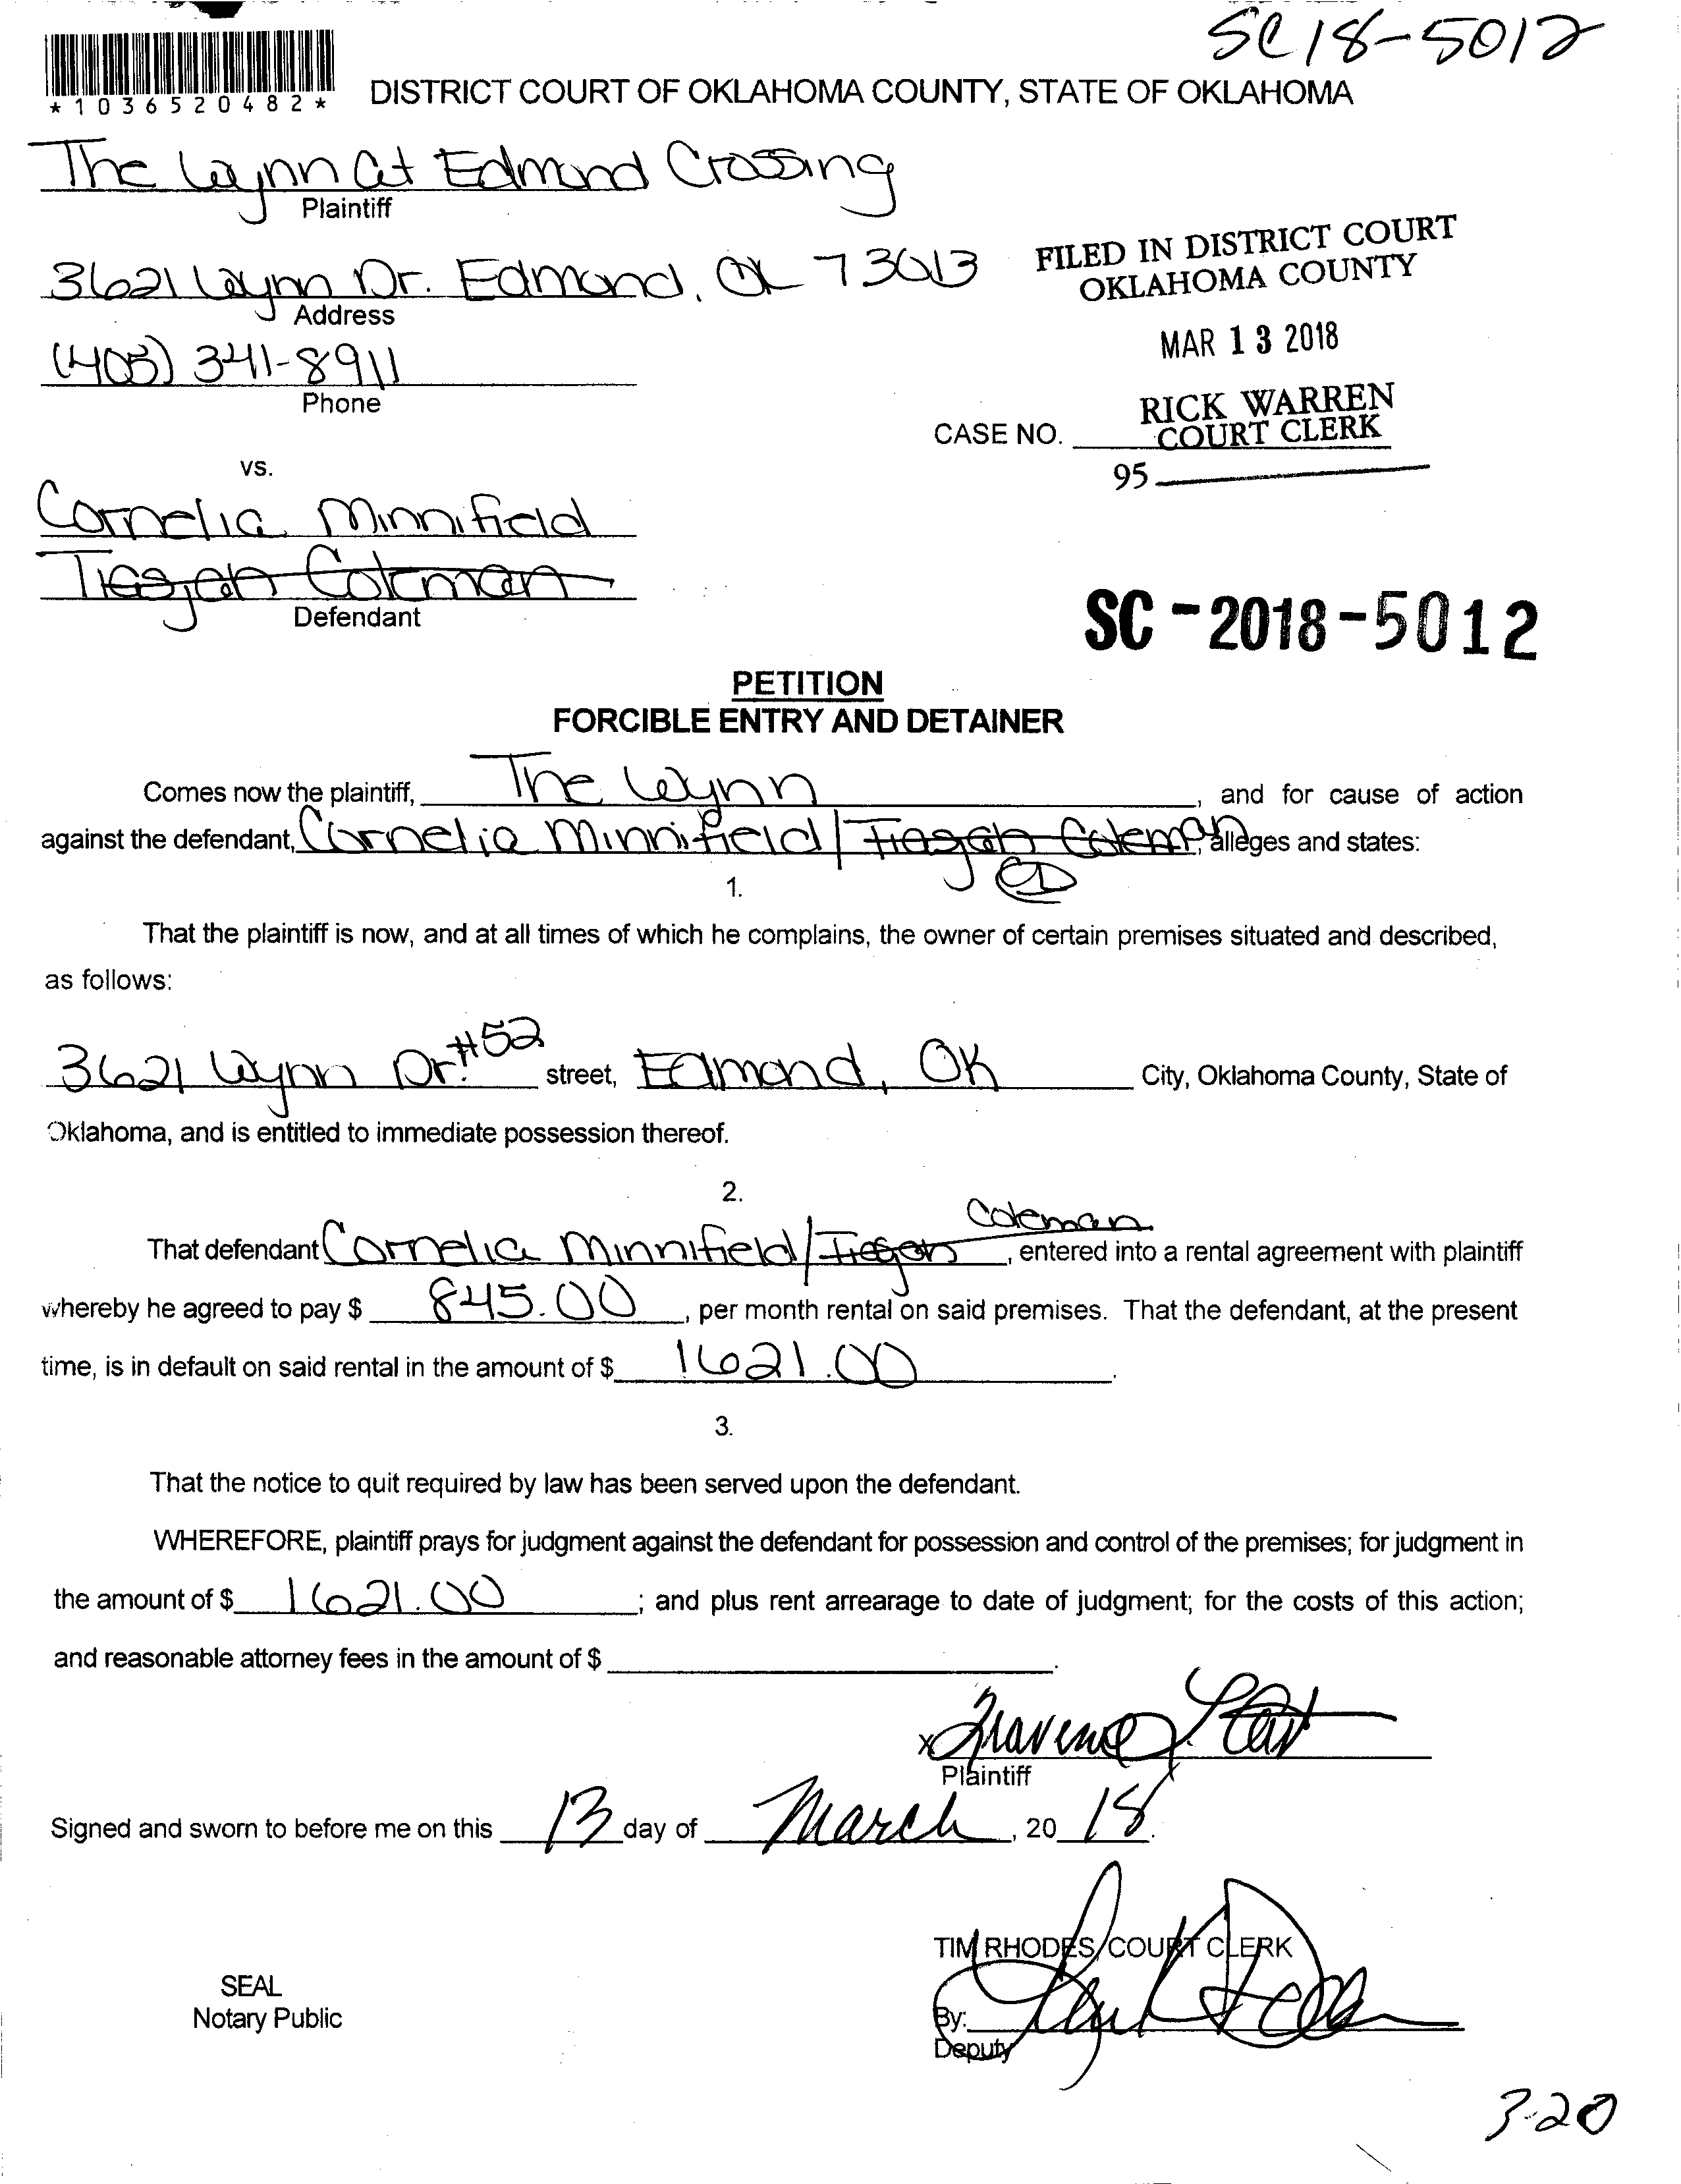 SC18-5012
*1036520482*
DISTRICT COURT OF OKLAHOMA COUNTY, STATE OF OKLAHOMA
The Wynn at Edmond Crossing
Plaintiff
3621 Wynn Dr. Edmond, OK 73013
Address
FILED IN DISTRICT COURT
OKLAHOMA COUNTY
(405) 341-8911
Phone
MAR 13 2018
RICK WARREN
COURT CLERK
CASE NO.
95
vs.
Cornelia Minnifield
Tieajah Coleman
Defendant
SC-2018-5012
PETITION
FORCIBLE ENTRY AND DETAINER
Comes now the plaintiff, The Wynn, and for cause of action
against the defendant, Cornelia Minnifield/Tieajah Coleman, alleges and states:
CD
1.
That the plaintiff is now, and at all times of which he complains, the owner of certain premises situated and described,
as follows:
3621 Wynn Dr. #52 street, Edmond, OK City, Oklahoma County, State of
Oklahoma, and is entitled to immediate possession thereof.
2.
That defendant Cornelia Minnifield/Tieajah Coleman, entered into a rental agreement with plaintiff
whereby he agreed to pay $ 845.00, per month rental on said premises. That the defendant, at the present
time, is in default on said rental in the amount of $ 1621.00.
3.
That the notice to quit required by law has been served upon the defendant.
WHEREFORE, plaintiff prays for judgment against the defendant for possession and control of the premises; for judgment in
the amount of $ 1621.00; and plus rent arrearage to date of judgment; for the costs of this action;
and reasonable attorney fees in the amount of $
x
Plaintiff
Signed and sworn to before me on this 13 day of March, 2018.
TIM RHODES, COURT CLERK
SEAL
Notary Public
By:
Deputy
3-20